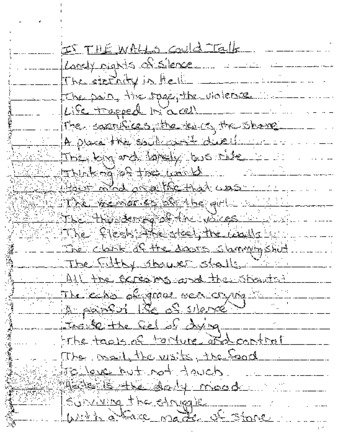 If THE WALLS Could Talk
Lonely nights of silence
The eternity in Hell
The pain, the rage, the violence
Life trapped in a cell
The sacrifices, the tears, the shame
A place the soul can't dwell
The long and lonely bus ride
Thinking of the world
Your mind on a life that was
The memories of the girl
The thundering of the voices
The flesh, the steel, the walls
The clank of the doors slamming shut
The filthy shower stalls
All the screams and the shouts!
The echo of grown men crying
A painful life of silence
Inside the feel of dying
The tools of torture and control
The mail, the visits, the food
To love but not touch
is the daily mood
Surviving the struggle
With a face made of stone